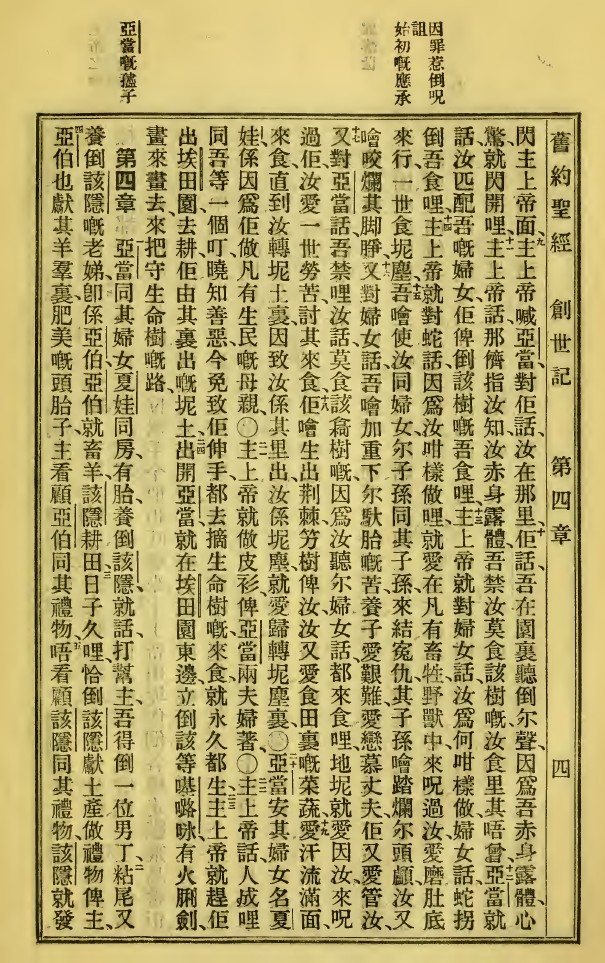 因罪惹倒呪
詛
始初嘅應承
亞當嘅孻子
舊約聖經 創世記 第四章 四
閃主上帝面九主上帝喊亞當對佢話汝在那里十佢話吾在園裏聽倒尔聲因爲吾赤身露體心
驚就閃開哩十一主上帝話那儕指汝知汝赤身露體吾禁汝莫食該樹嘅汝食里其唔曾十二亞當就
話汝匹配吾嘅婦女佢俾倒該樹嘅吾食哩十三主上帝就對婦女話汝爲何咁樣做婦女話蛇拐
倒吾食哩十四主上帝就對蛇話因爲汝咁樣做哩就愛在凡有畜牲野獸中來呪過汝愛磨肚底
來行一世食坭塵十五吾噲使汝同婦女尔子孫同其子孫來結寃仇其子孫噲踏爛尔頭顱汝又
噲咬爛其脚睜十六又對婦女話吾噲加重下尔馱胎嘅苦養子愛艱難愛戀慕丈夫佢又愛管汝
十七又對亞當話吾禁哩汝話莫食該樹嘅因爲汝聽尔婦女話都來食哩地坭就愛因汝來呪
過佢汝愛一世勞苦討其來食十八佢噲生出荆棘竻樹俾汝汝又愛食田裏嘅菜蔬十九愛汗流滿面
來食直到汝轉坭土裏因致汝係其里出汝係坭塵就愛歸轉坭塵裏〇二十亞當安其婦女名夏
娃係因爲佢做凡有生民嘅母親〇二一主上帝就做皮衫俾亞當兩夫婦著〇二二主上帝話人成哩
同吾等一個叮曉知善惡今免致佢伸手都去摘生命樹嘅來食就永久都生二三主上帝就趕佢
出埃田園去耕佢由其裏出嘅坭土二四出開亞當就在埃田園東邊立倒該等𠼻嚕咏有火脷劍
晝來晝去來把守生命樹嘅路
第四章 一亞當同其婦女夏娃同房有胎養倒該隱就話打幫主吾得倒一位男丁二粘尾又
養倒該隱嘅老娣卽係亞伯亞伯就畜羊該隱耕田三日子久哩恰倒該隱獻土產做禮物俾主
四亞伯也獻其羊羣裏肥美嘅頭胎子主看顧亞伯同其禮物五唔看顧該隱同其禮物該隱就發